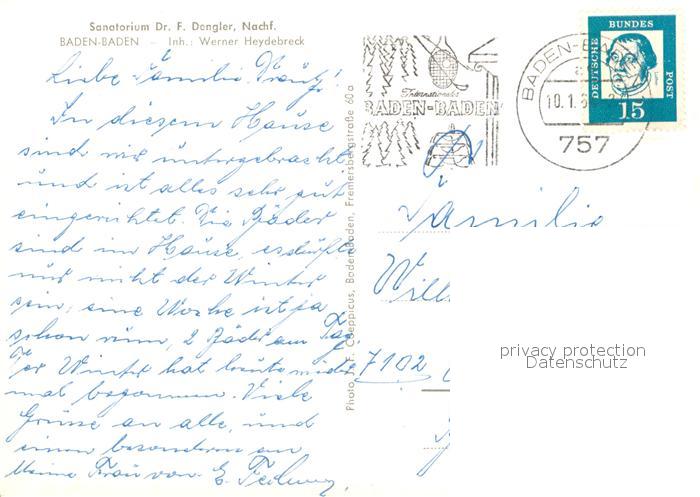 Sanatorium Dr. F. Dengler, Nachf.
BADEN-BADEN – Inh.: Werner Heydebreck
Liebe Familie
In diesem Hause
sind wir untergebracht
und ist alles sehr gut
eingerichtet. Die Bäder
sind im Hause, es dürfte
nur nicht der Winter
sein, eine Woche ist ja
schon rum, 2 Bäder am Tag
Der Winter hat heute wieder
mal begonnen. Viele
Grüsse an alle, und
einen besonderen an
Meine Frau von E.
Photo J. F. Coeppicus, Baden-Baden, Fremersbergstraße 60a
Internationales
BADEN-BADEN
BADEN-BA
10.1.6
757
DEUTSCHE
BUNDES
POST
15
Familie
Will
7102
privacy protection
Datenschutz